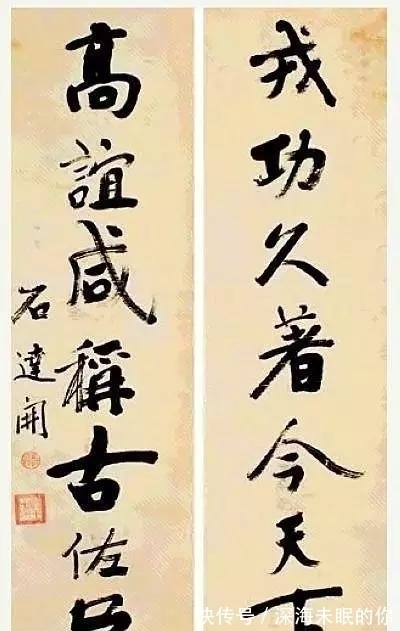 戎功久著今天
高誼咸稱古佐
石達開
快传号 / 深海未眠的你